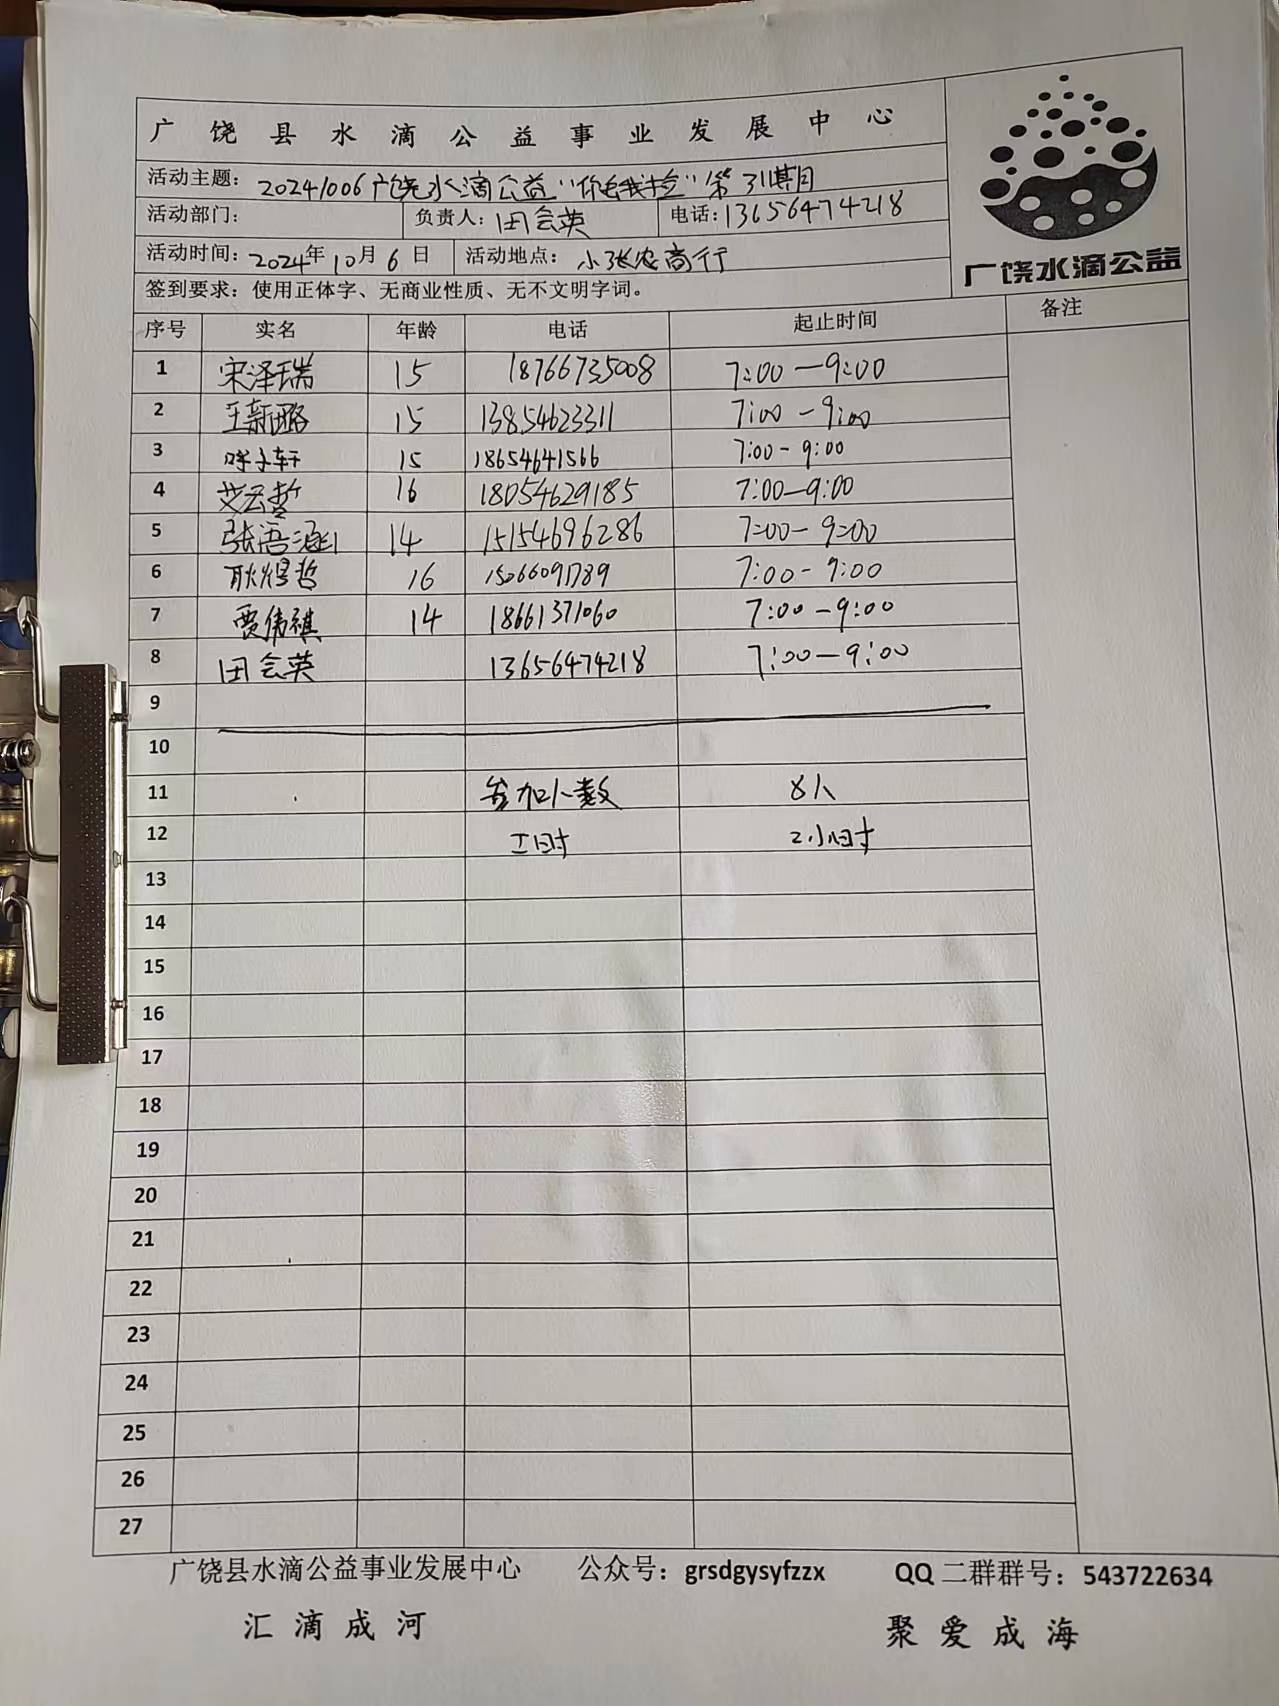 广饶县水滴公益事业发展中心
活动主题：20241006广饶水滴公益"你丢我捡"第311期
活动部门： 负责人：田会英 电话：13656474218
活动时间：2024年10月6日 活动地点：小张农商行
签到要求：使用正体字、无商业性质、无不文明字词。
广饶水滴公益
序号 实名 年龄 电话 起止时间 备注
1 宋泽瑞 15 18766735008 7:00—9:00
2 王新璐 15 13854623311 7:00-9:00
3 轩 15 18654641566 7:00-9:00
4 艾云哲 16 18054629185 7:00—9:00
5 张语涵 14 15154696286 7:00-9:00
6 耿煜哲 16 15066091789 7:00-9:00
7 贾伟祺 14 18661371060 7:00-9:00
8 田会英 13656474218 7:00—9:00
9
10
11 参加人数 8人
12 工时 2小时
13
14
15
16
17
18
19
20
21
22
23
24
25
26
27
广饶县水滴公益事业发展中心 公众号：grsdgysyfzzx QQ二群群号：543722634
汇滴成河 聚爱成海